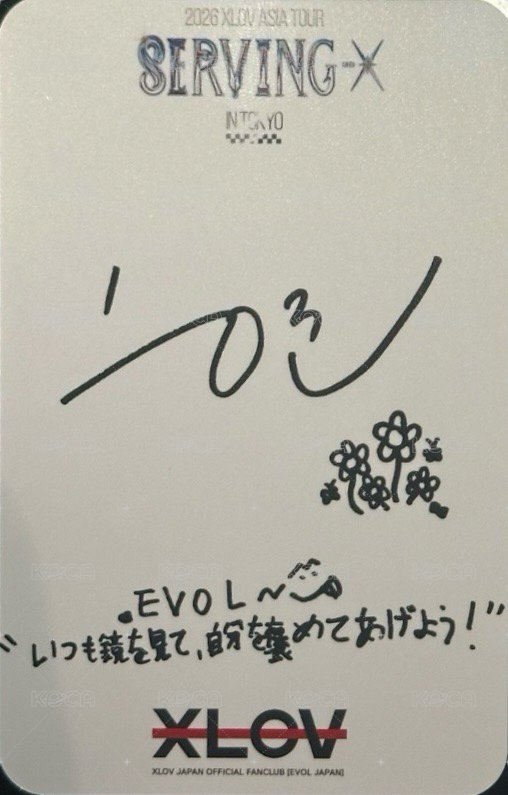 2026 XLOV ASIA TOUR
SERVING-X
IN TOKYO
EVOL~
"いつも鏡を見て、自分を褒めてあげよう!"
KOCA KOCA KOCA KOCA
XLOV
XLOV JAPAN OFFICIAL FANCLUB [EVOL JAPAN]